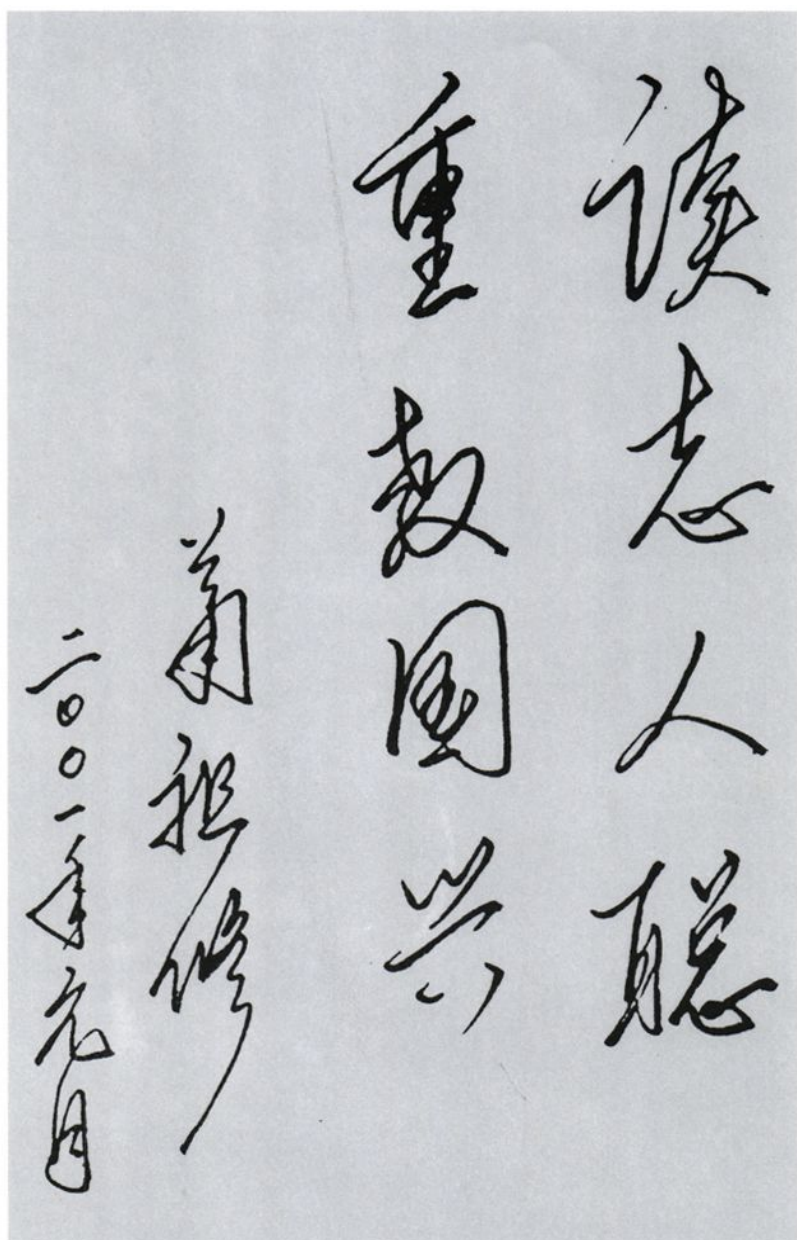 读志人聪
重教国兴
萧祖修
二〇〇一年元月